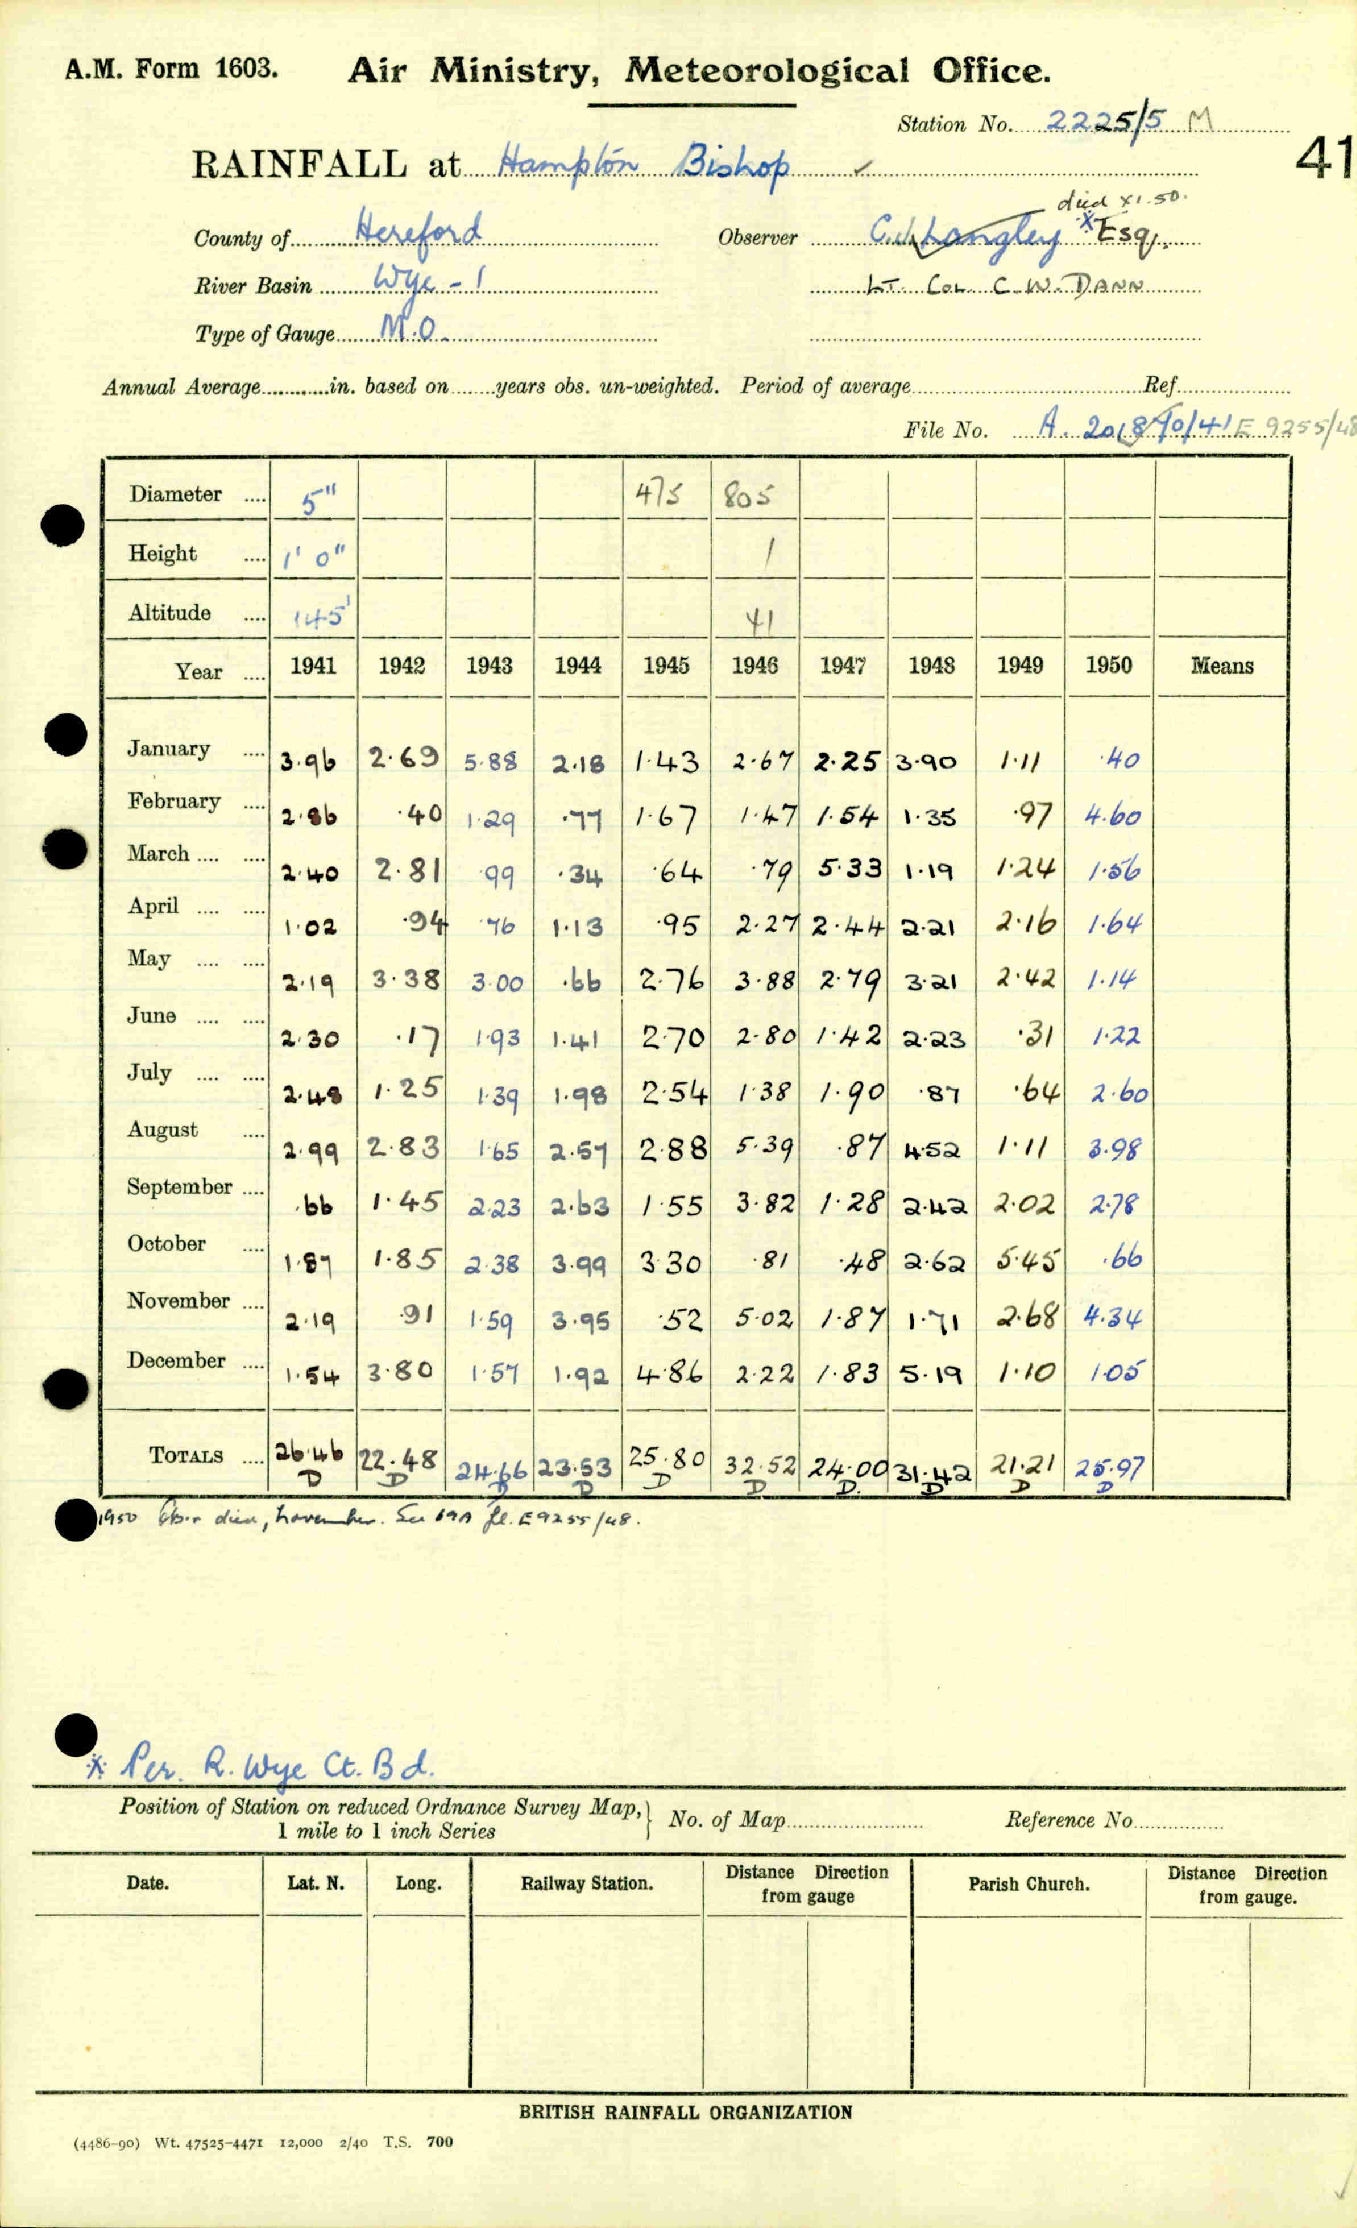 A.M. Form 1603. Air Ministry, Meteorological Office.
Station No. 2225/5 M
41
RAINFALL at Hampton Bishop ✓
died XI.50.
County of Hereford Observer Langley * Esq.
River Basin Wye - 1 Lt. Col. C. W. Dann
Type of Gauge M.O.
Annual Average in. based on years obs. un-weighted. Period of average Ref.
File No. E 9255/48
Diameter .... 5" 475 805
Height .... 1' 0" 1
Altitude .... 145' 41
Year .... 1941 1942 1943 1944 1945 1946 1947 1948 1949 1950 Means
January .... 3.96 2.69 5.88 2.18 1.43 2.67 2.25 3.90 1.11 .40
February .... 2.86 .40 1.29 .77 1.67 1.47 1.54 1.35 .97 4.60
March .... .... 2.40 2.81 .99 .34 .64 .79 5.33 1.19 1.24 1.56
April .... .... 1.02 .94 .76 1.13 .95 2.27 2.44 2.21 2.16 1.64
May .... .... 2.19 3.38 3.00 .66 2.76 3.88 2.79 3.21 2.42 1.14
June .... .... 2.30 .17 1.93 1.41 2.70 2.80 1.42 2.23 .31 1.22
July .... .... 2.48 1.25 1.39 1.98 2.54 1.38 1.90 .87 .64 2.60
August .... 2.99 2.83 1.65 2.57 2.88 5.39 .87 4.52 1.11 3.98
September .... .66 1.45 2.23 2.63 1.55 3.82 1.28 2.42 2.02 2.78
October .... 1.87 1.85 2.38 3.99 3.30 .81 .48 2.62 5.45 .66
November .... 2.19 .91 1.59 3.95 .52 5.02 1.87 1.71 2.68 4.34
December .... 1.54 3.80 1.57 1.92 4.86 2.22 1.83 5.19 1.10 1.05
Totals .... 26.46 22.48 24.66 23.53 25.80 32.52 24.00 31.42 21.21 25.97
D D D D D D D. D D D
1950 Obsr died, November. See 19A fl. E9255/48.
* Per. R. Wye Ct. Bd.
Position of Station on reduced Ordnance Survey Map, } No. of Map Reference No.
1 mile to 1 inch Series
Date. Lat. N. Long. Railway Station. Distance Direction from gauge Parish Church. Distance Direction from gauge.
BRITISH RAINFALL ORGANIZATION
(4486-90) Wt. 47525-4471 12,000 2/40 T.S. 700